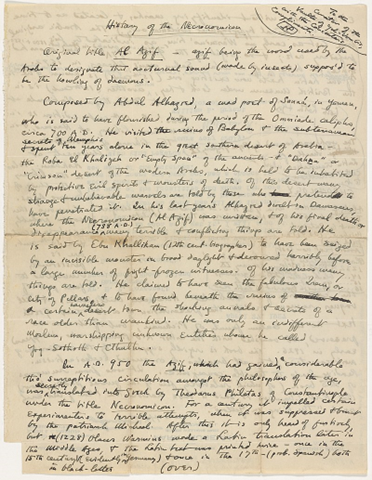 History of the Necronomicon
To the
Original title Al Azif — azif being the word used by the
Arabs to designate that nocturnal sound (made by insects) suppos'd to
be the howling of daemons.
Composed by Abdul Alhazred, a mad poet of Sanaá, in Yemen,
who is said to have flourished during the period of the Ommiade caliphs,
circa 700 A.D. He visited the ruins of Babylon & the subterranean
secrets of Memphis
& spent ten years alone in the great southern desert of Arabia —
the Roba El Khaliyeh or "Empty Space" of the ancients — & "Dahna" or
"Crimson" desert of the modern Arabs, which is held to be inhabited
by protective evil spirits & monsters of death. Of this desert many
strange & unbelievable marvels are told by those who pretend to
have penetrated it. In his last years Alhazred dwelt in Damascus,
where the Necronomicon (Al Azif) was written, & of his final death or
disappearance (738 A.D.) many terrible & conflicting things are told. He
is said by Ebn Khallikan (12th cent. biographer) to have been seized
by an invisible monster in broad daylight & devoured horribly before
a large number of fright-frozen witnesses. Of his madness many
things are told. He claimed to have seen the fabulous Irem, or
City of Pillars, & to have found beneath the ruins of
a certain nameless desert town the shocking annals & secrets of a
race older than mankind. He was only an indifferent
Moslem, worshipping unknown entities whom he called
Yog-Sothoth & Cthulhu.
In A.D. 950 the Azif, which had gained considerable
tho' surreptitious circulation amongst the philosophers of the age,
was secretly translated into Greek by Theodorus Philetas of Constantinople
under the title Necronomicon. For a century it impelled certain
experimenters to terrible attempts, when it was suppressed & burnt
by the patriarch Michael. After this it is only heard of furtively,
but (1228) Olaus Wormius made a Latin translation later in
the Middle Ages, & the Latin text was printed twice — once in the
15th century in black-letter (evidently in Germany) & once in the 17th — (prob. Spanish) both
(over)